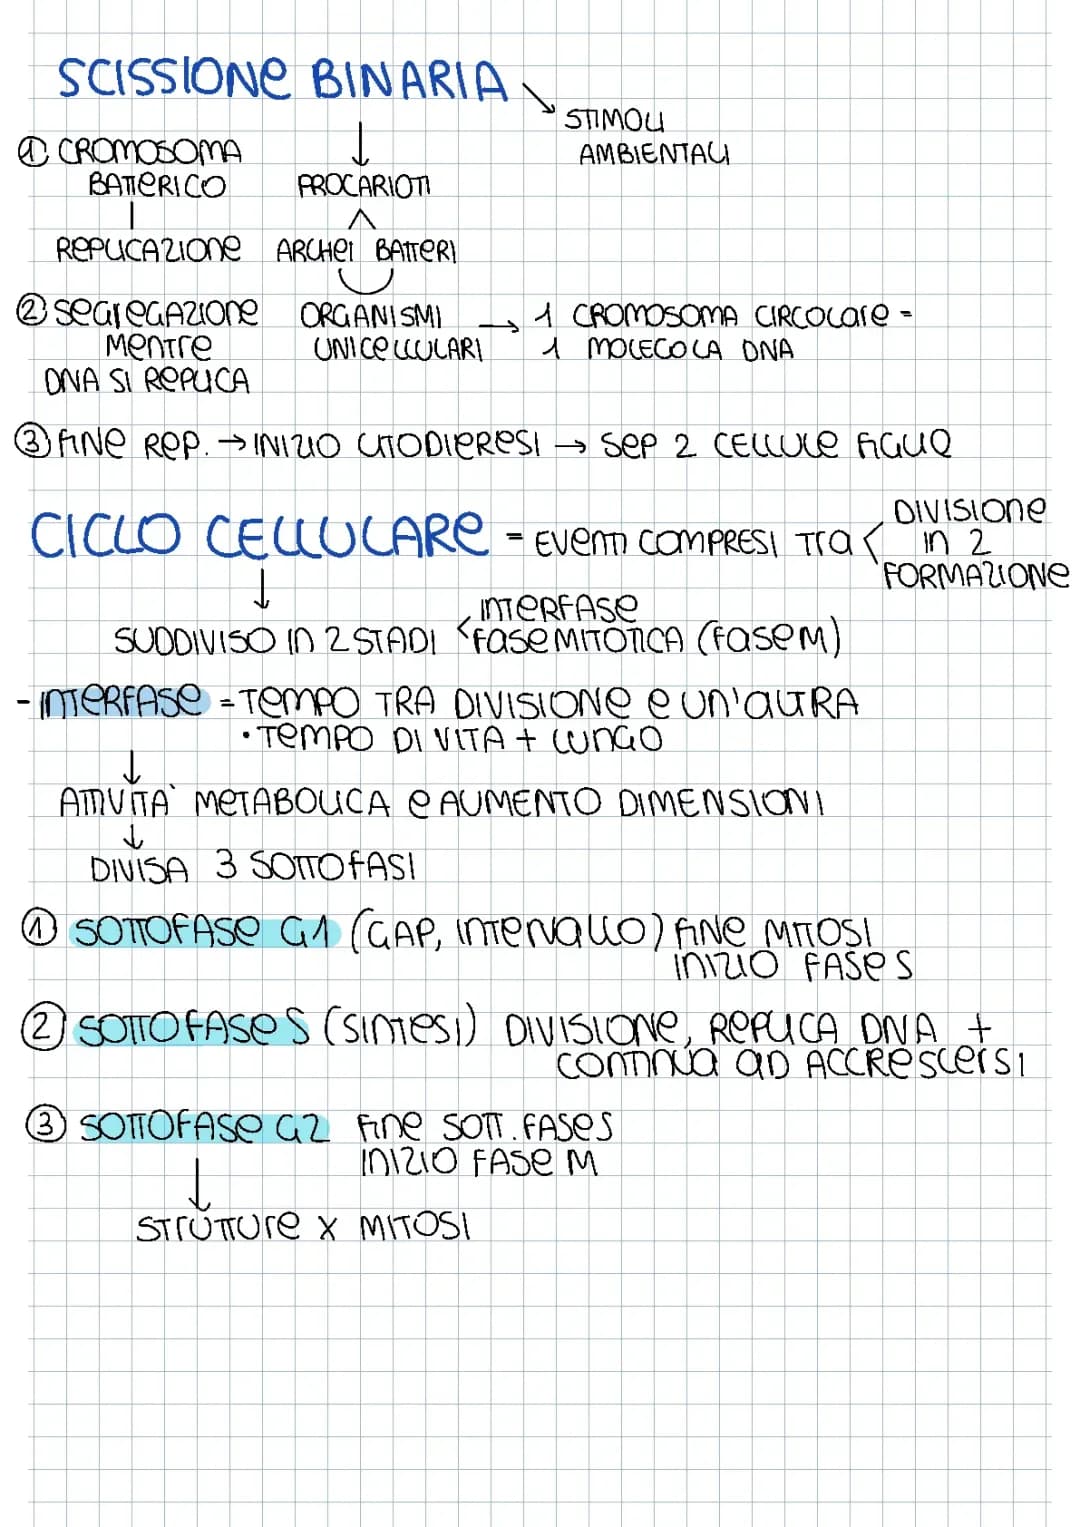 SCISSIONE BINARIA
STIMOLI
AMBIENTALI
① CROMOSOMA
BATTERICO
REPLICAZIONE
PROCARIOTI
ARCHEI BATTERI
② SEGREGAZIONE
MENTRE
DNA SI REPLICA
ORGANISMI
UNICELLULARI
→ 1 CROMOSOMA CIRCOLARE =
1 MOLECOLA DNA
③ FINE REP. → INIZIO CITODIERESI → SEP 2 CELLULE FIGLIE
CICLO CELLULARE = EVENTI COMPRESI TRA <
DIVISIONE
IN 2
FORMAZIONE
SUDDIVISO IN 2 STADI <
INTERFASE
FASE MITOTICA (FASE M)
- INTERFASE = TEMPO TRA DIVISIONE E UN'ALTRA
• TEMPO DI VITA + LUNGO
ATTIVITA' METABOLICA E AUMENTO DIMENSIONI
DIVISA 3 SOTTOFASI
① SOTTOFASE G1 (GAP, INTERVALLO) FINE MITOSI
INIZIO FASE S
② SOTTOFASE S (SINTESI) DIVISIONE, REPLICA DNA +
CONTINUA AD ACCRESCERSI
③ SOTTOFASE G2 FINE SOTT. FASE S
INIZIO FASE M
STRUTTURE X MITOSI